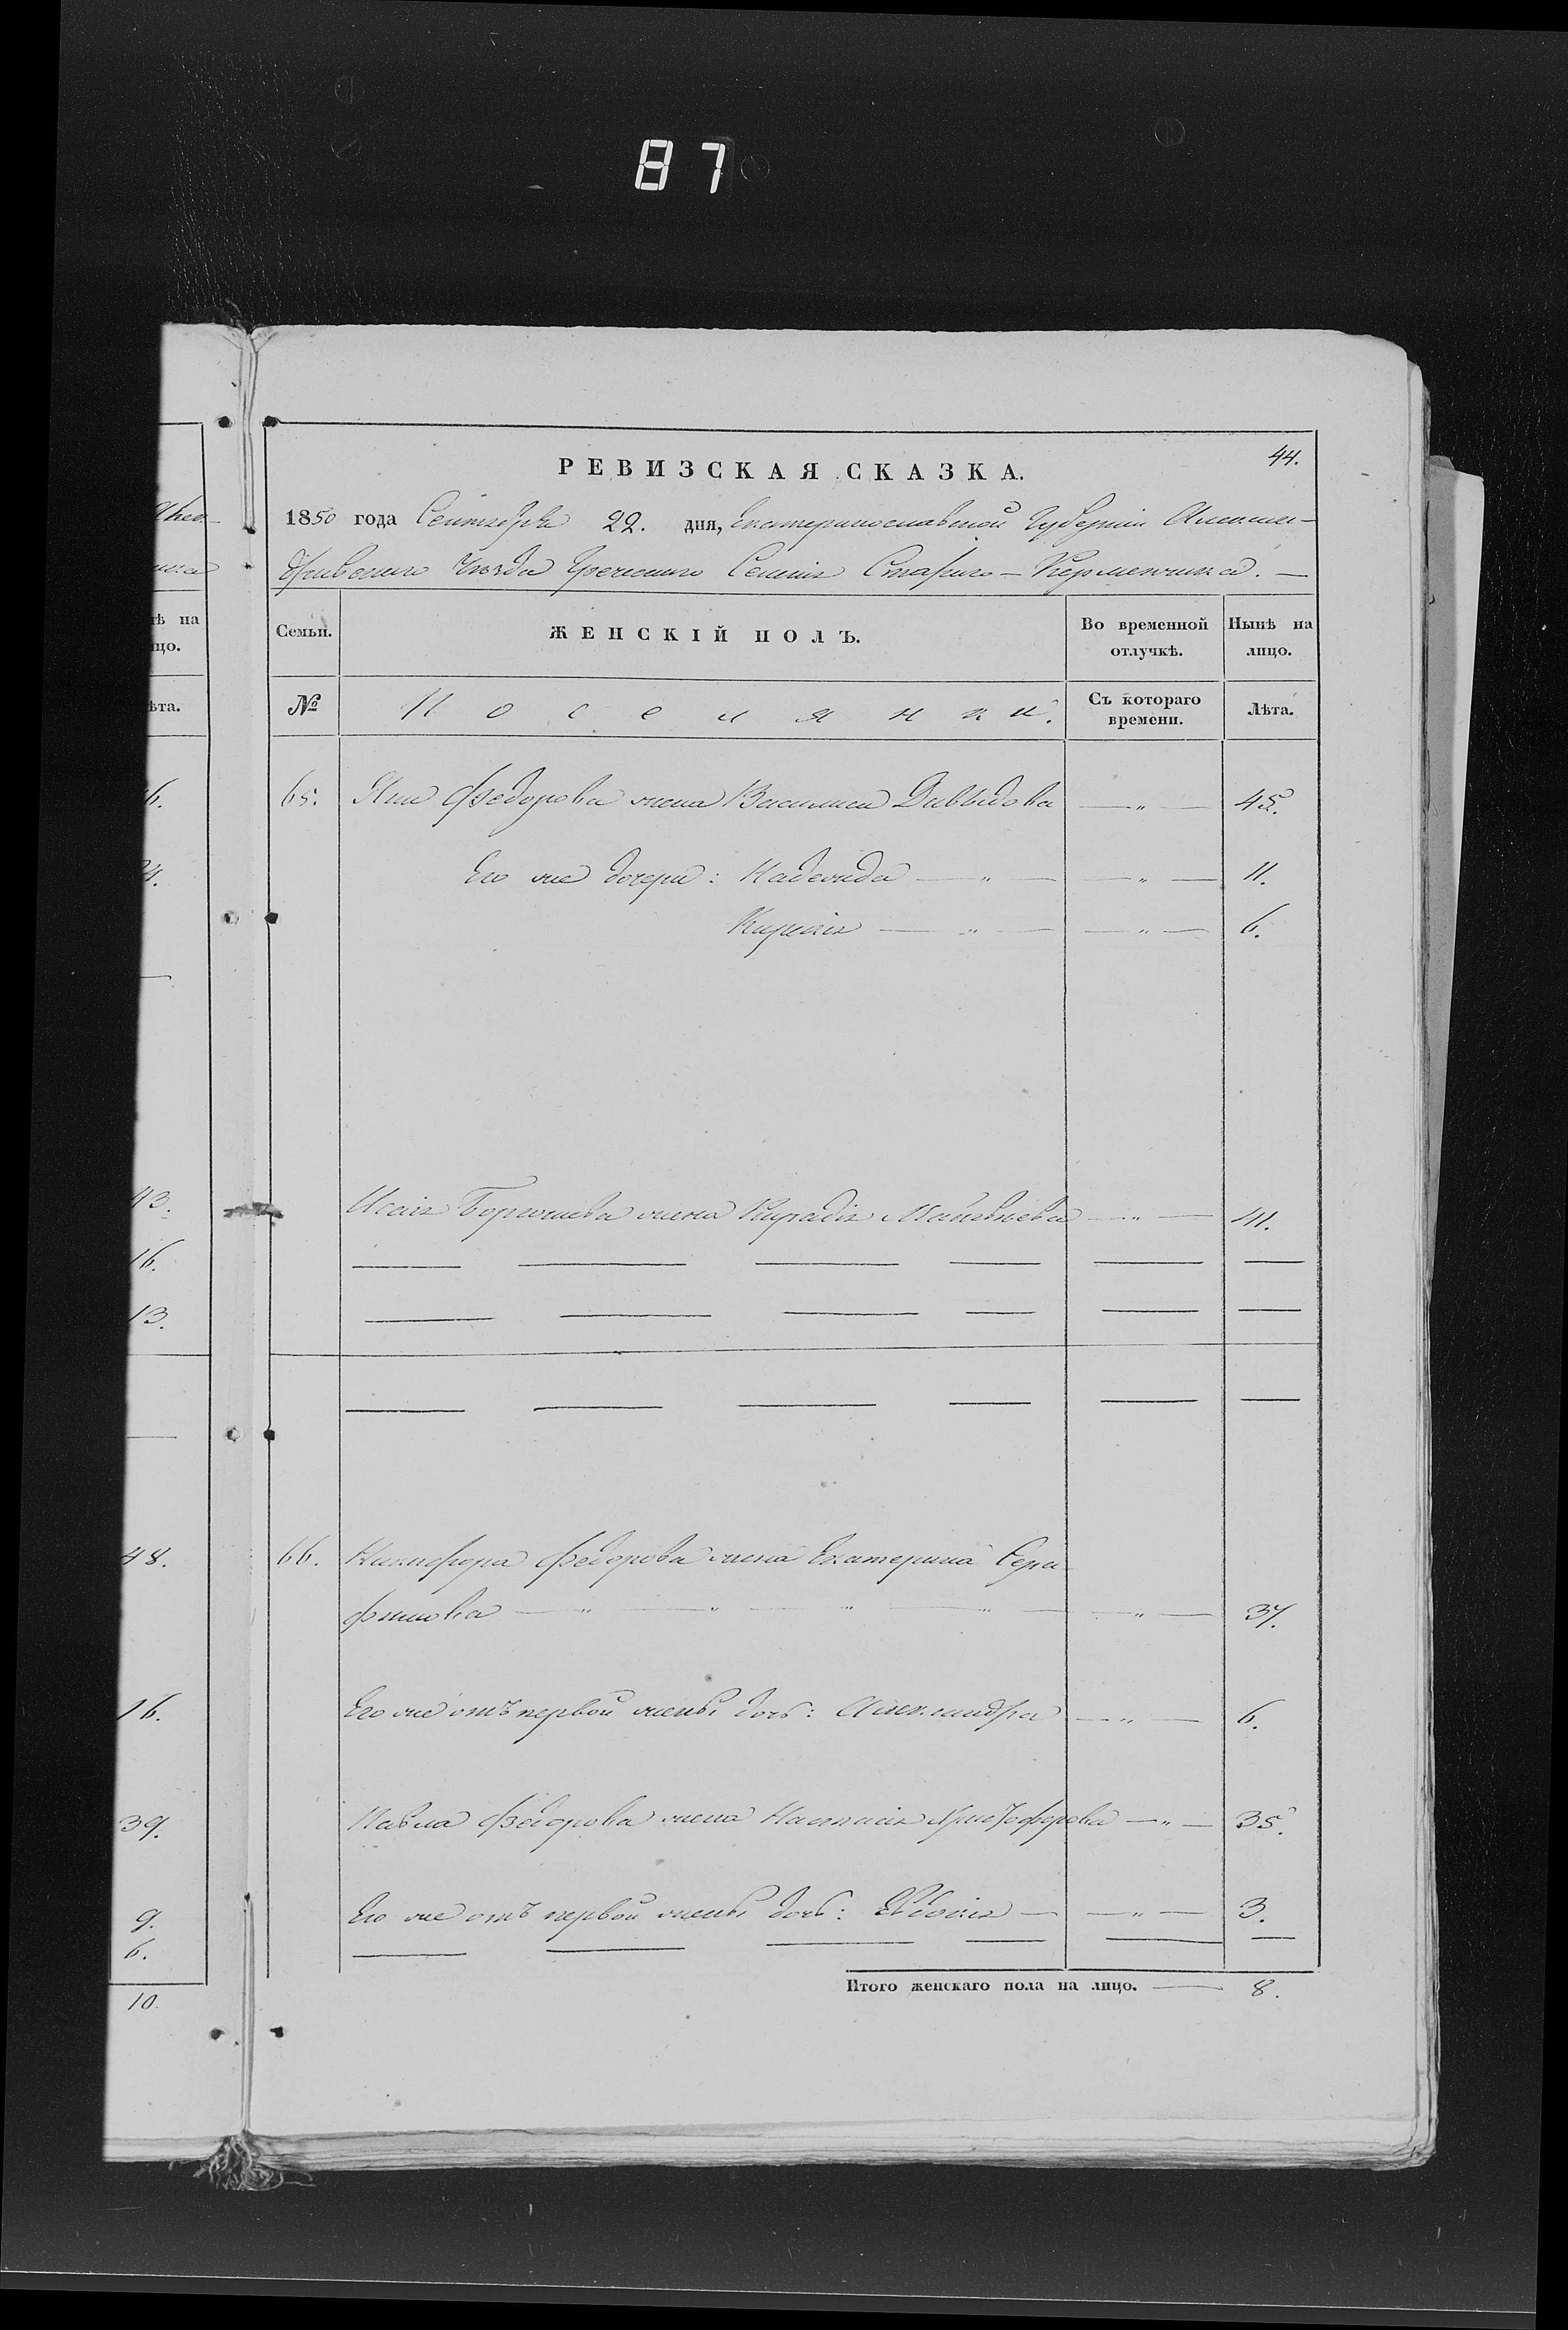 87
44.
РЕВИЗСКАЯ СКАЗКА.
1850 года Сентября 22. дня, Екатеринославской Губерніи Алексан-
дровскаго Уѣзда Греческаго Селенія Стараго-Керменчика.
Семьи.
ЖЕНСКІЙ ПОЛЪ.
Во временной отлучкѣ.
Нынѣ на лицо.
№
Поселянки.
Съ котораго времени.
Лѣта.
65. Яни Федорова жена Василиса Давыдова —„— 45.
Его же дочери: Надежда —„— —„— 11.
Кирикія —„— —„— 6.
Исаія жена Матвѣева —„— 41.
66. Никифора Федорова жена Екатерина Сера-
фимова —„—„—„—„— —„— 37.
Его же отъ первой жены дочь: Александра —„— 6.
Павла Федорова жена Настасія Христофорова —„— 35.
Его же отъ первой жены дочь: Евдокія — —„— 3.
Итого женскаго пола на лицо. — 8.
ѣ на
цо.
ѣта.
6.
43.
16.
13.
48.
16.
39.
9.
6.
10.